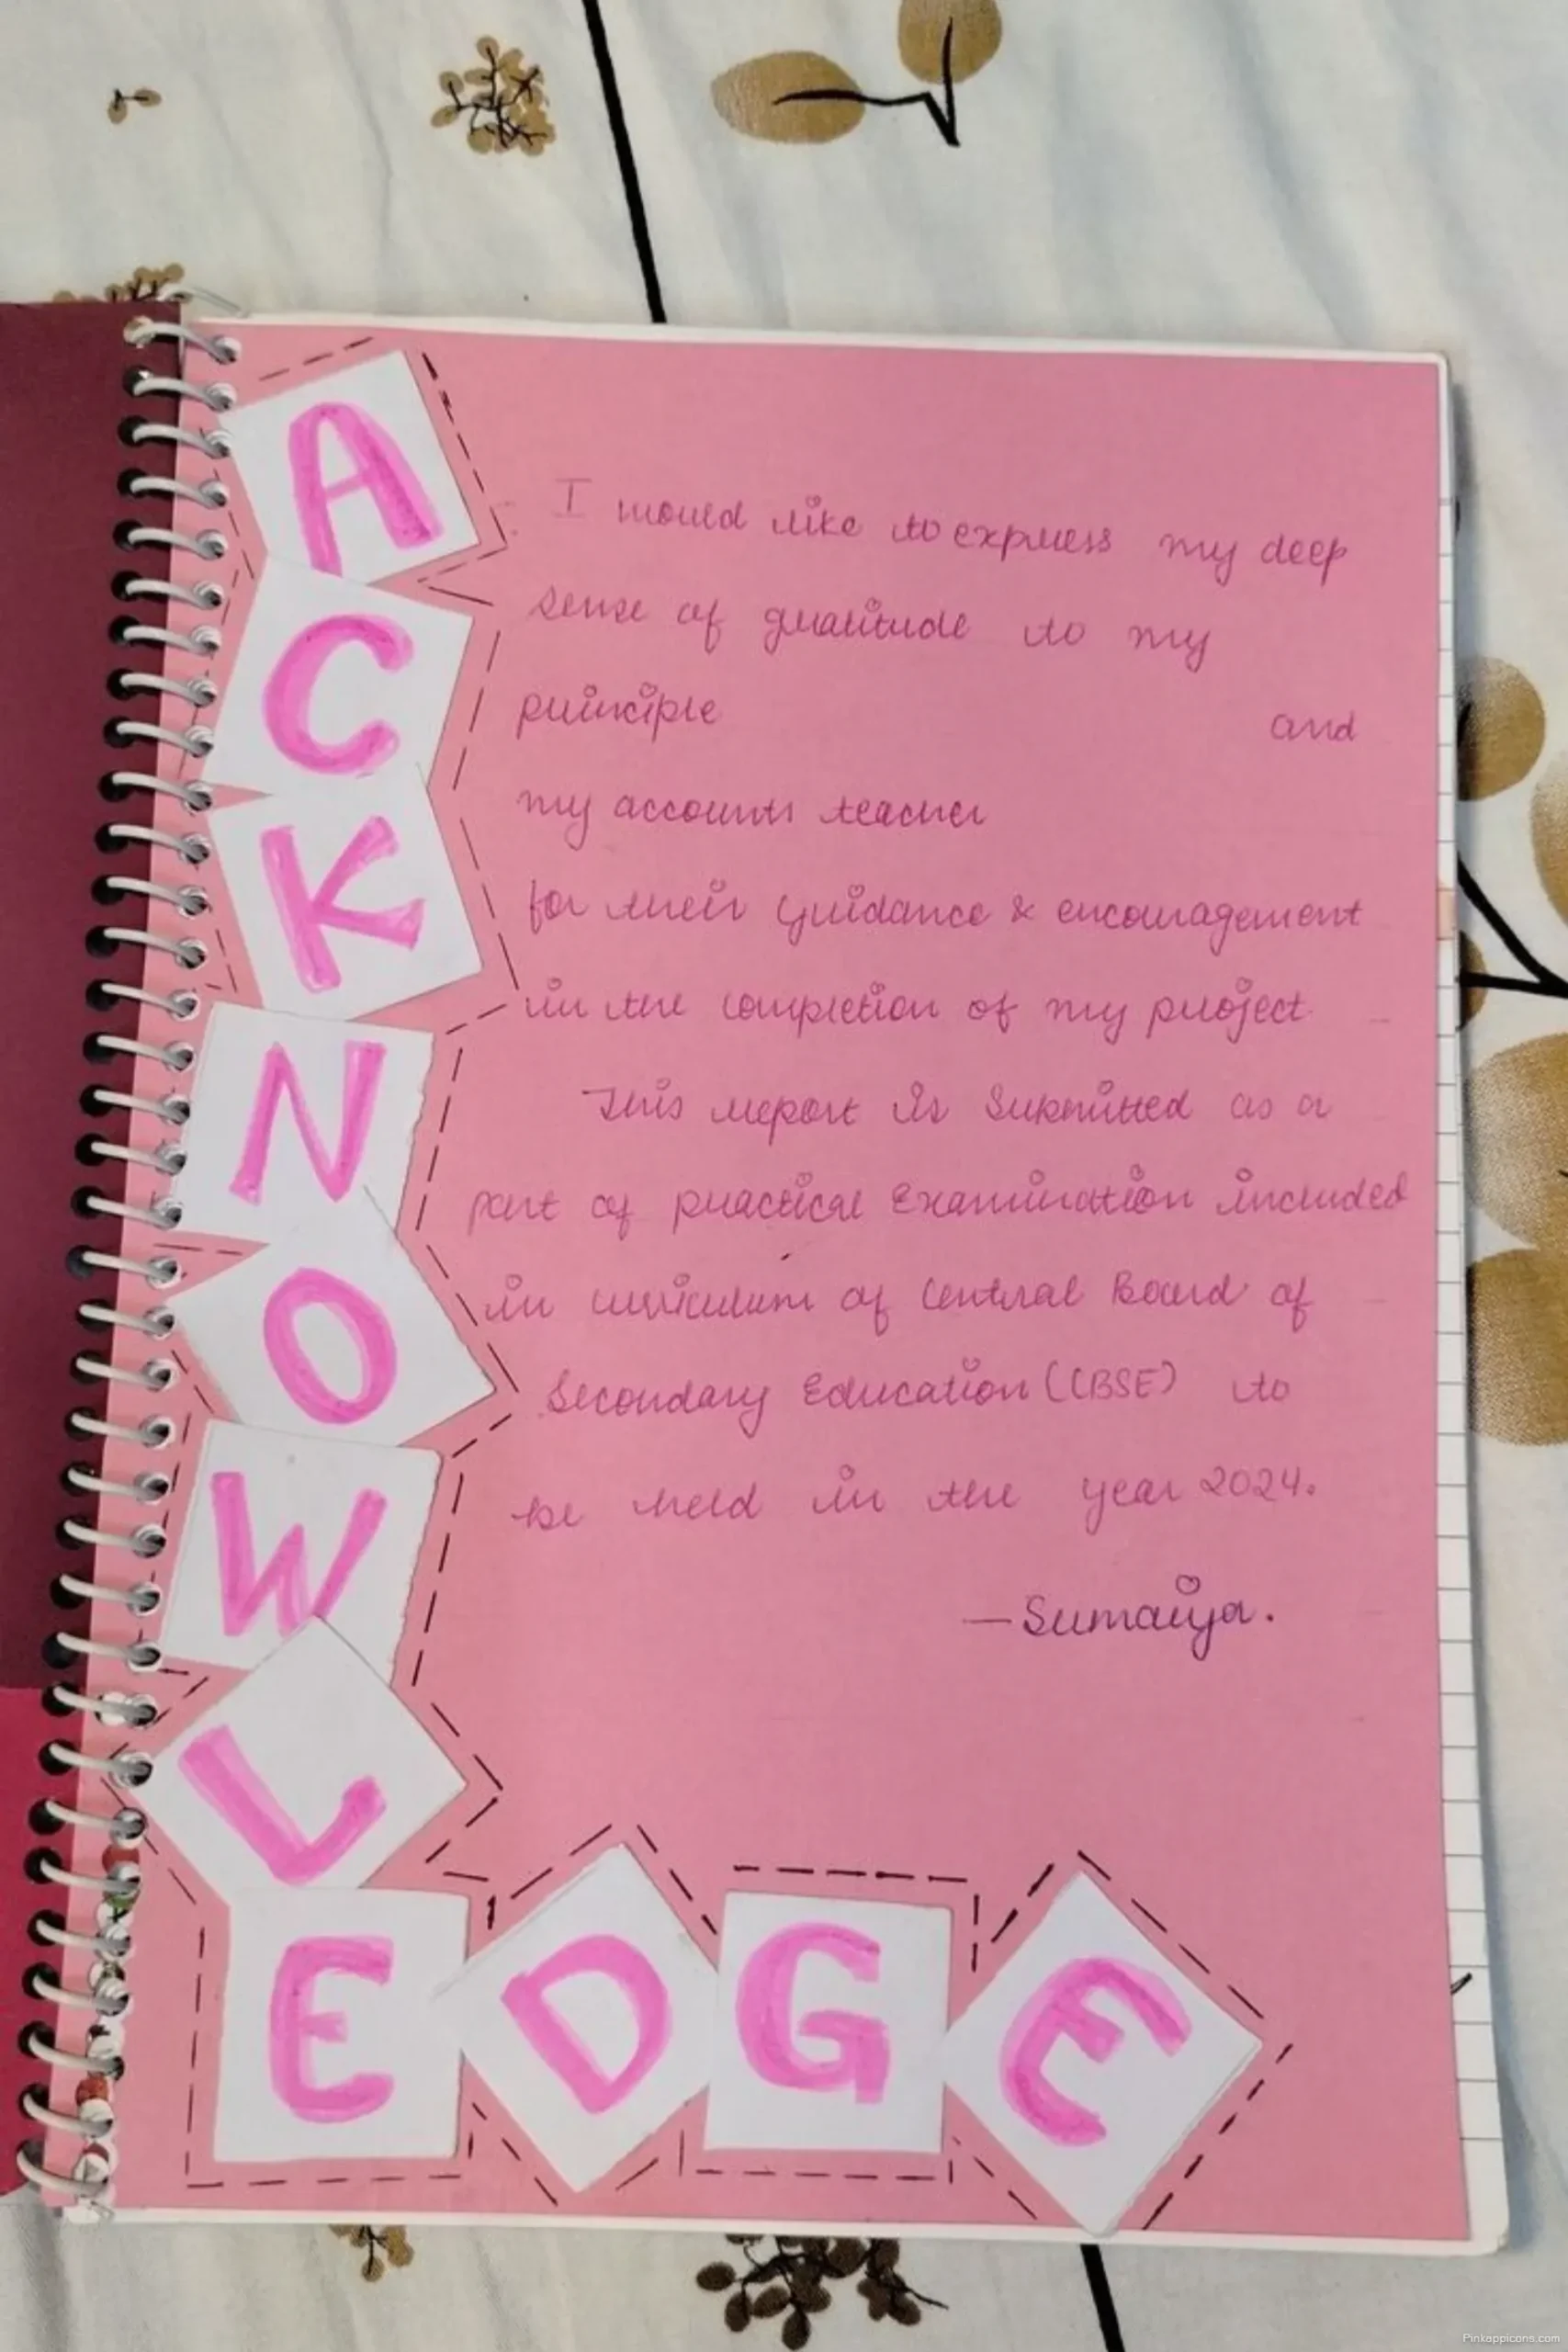 ACKNOWLEDGE
I would like to express my deep
sense of gratitude to my
principle and
my accounts teacher
for their guidance & encouragement
in the completion of my project.
This report is Submitted as a
part of practical Examination included
in curriculum of Central Board of
Secondary Education (CBSE) to
be held in the year 2024.
—Sumaiya.
Pinkappicons.com